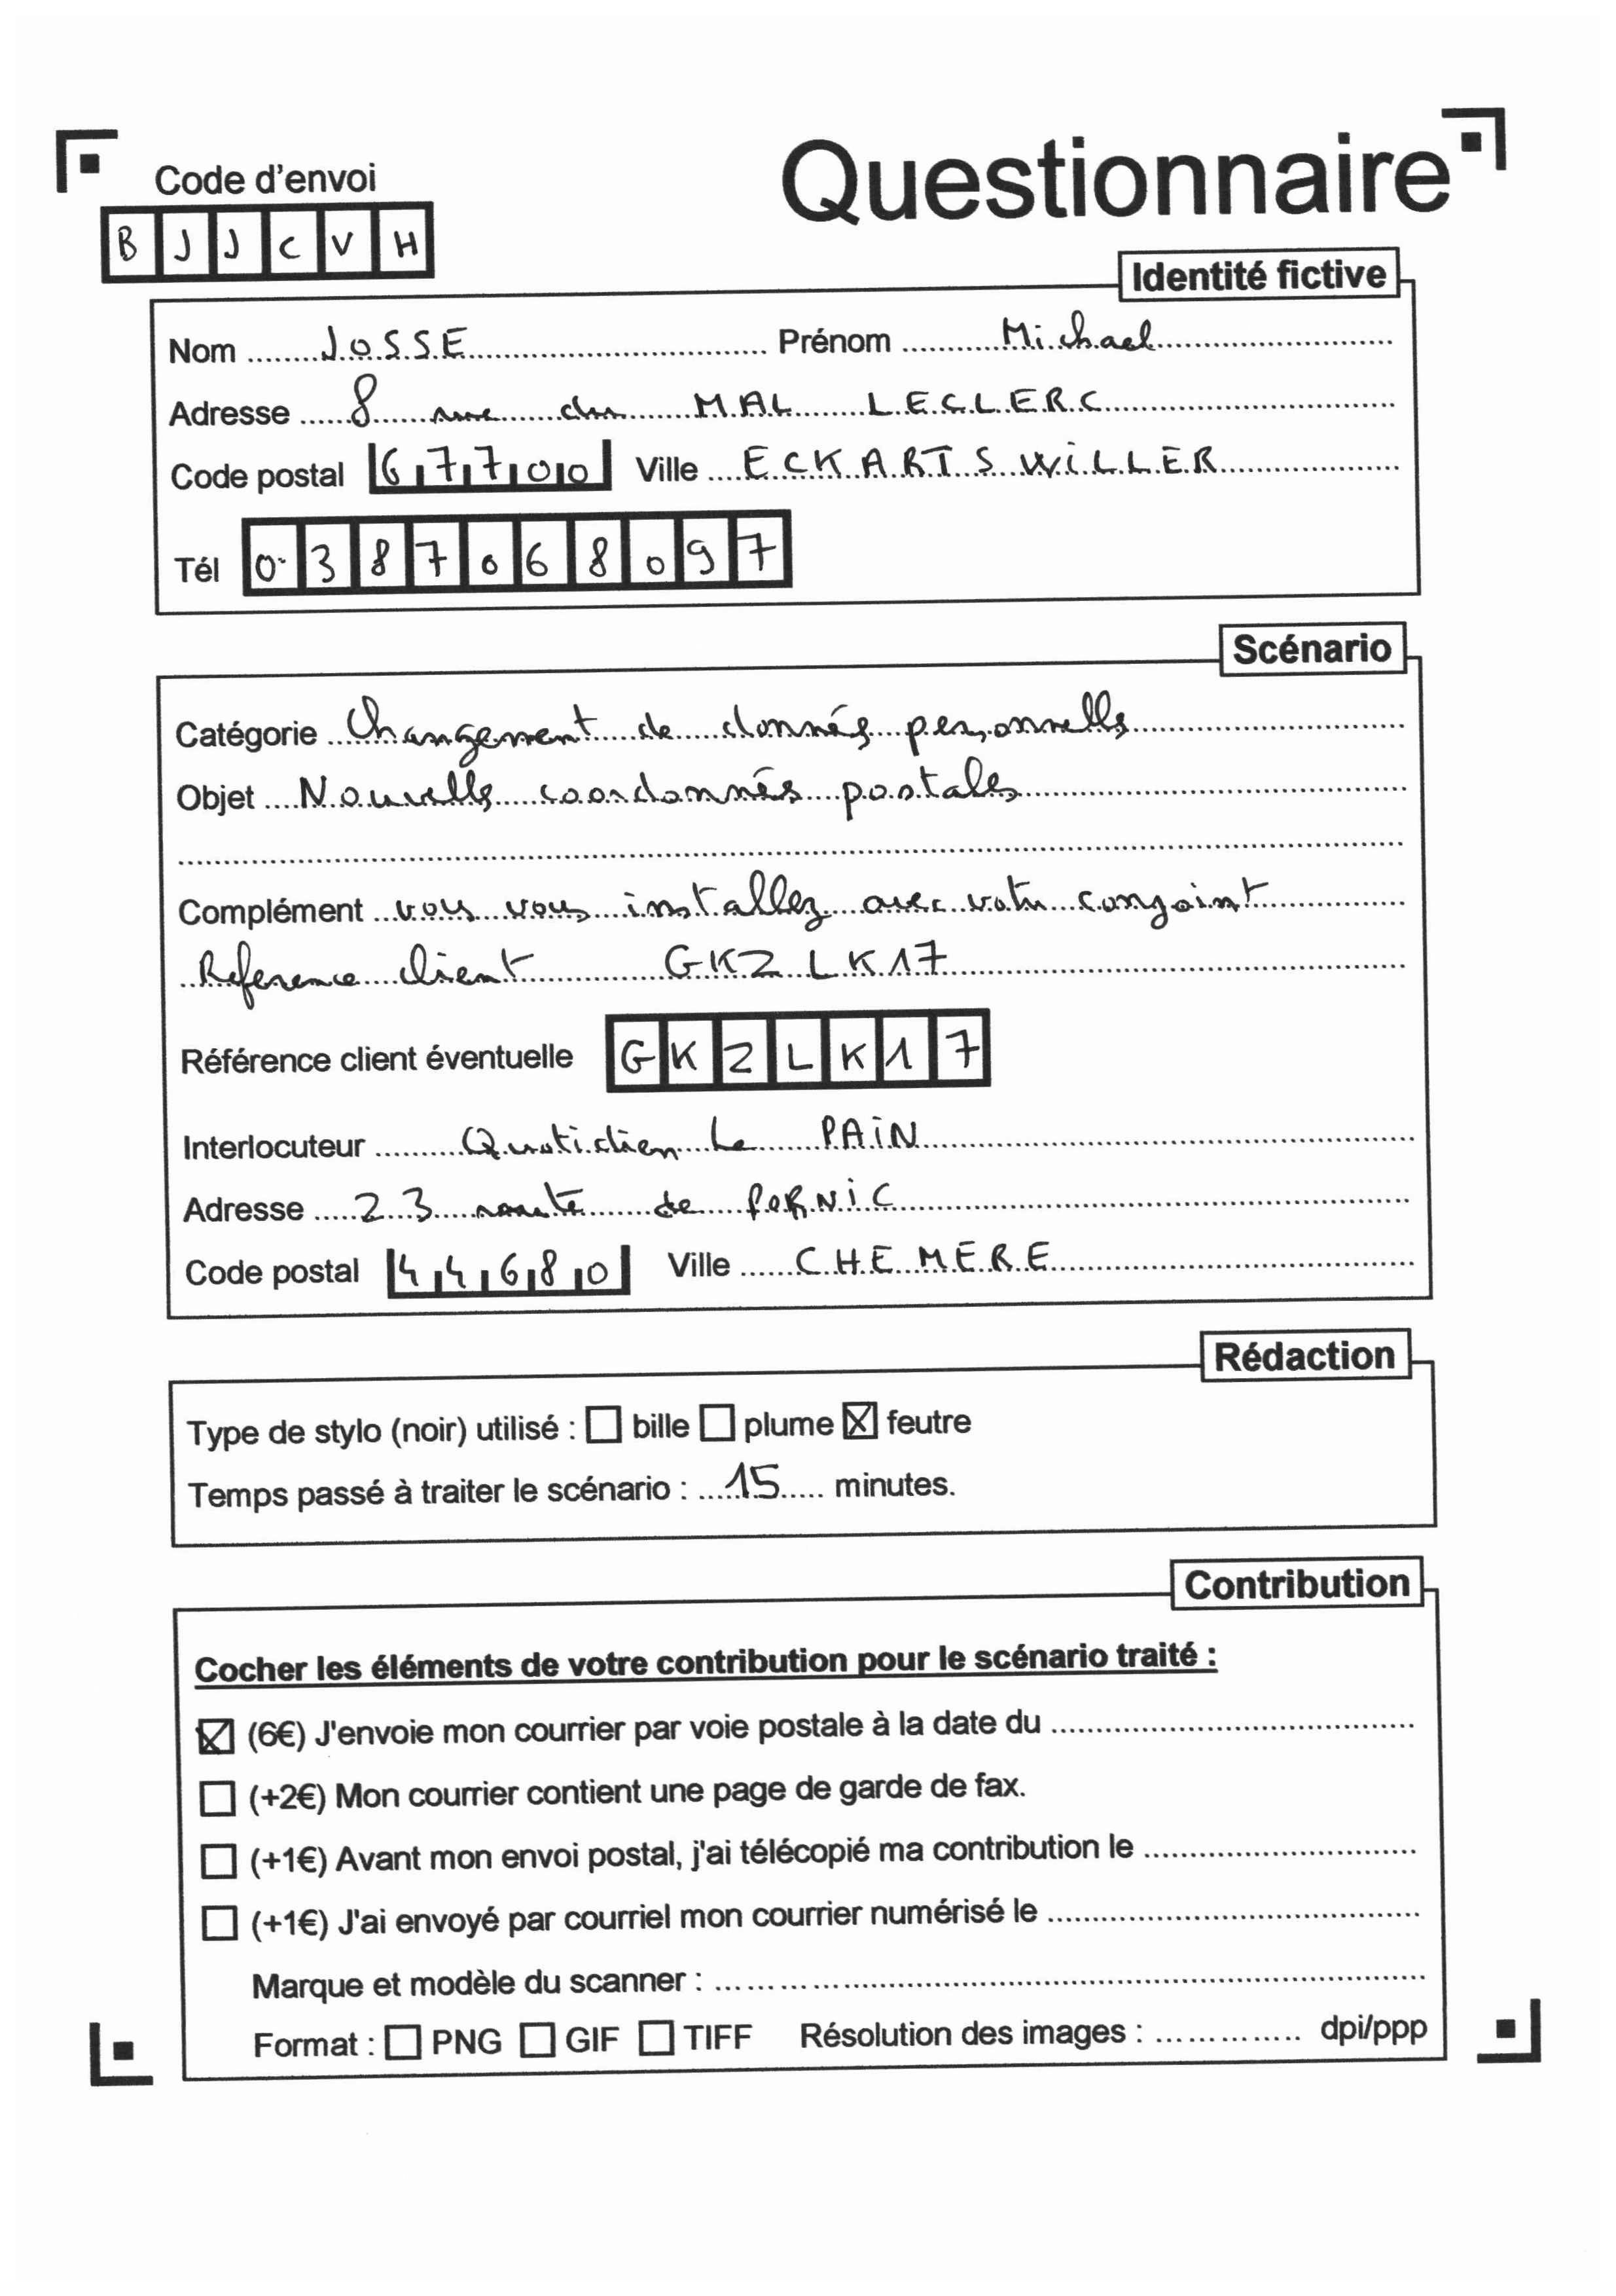 Questionnaire
Code d'envoi
B J J C V H
Identité fictive
Nom ........ JOSSE ........ Prénom ........ Michael ........
Adresse ..... 8 rue du MAL LECLERC ........
Code postal 67700 Ville ... ECKARTSWiLLER ........
Tél 0387068097
Scénario
Catégorie Changement de données personnelles ........
Objet .... Nouvelles coordonnées postales ........
Complément .. vous vous installez avec votre conjoint ........
Reference client GKZLK17 ........
Référence client éventuelle GKZLK17
Interlocuteur ........ Quotidien Le PAiN ........
Adresse .... 23 route de PORNiC ........
Code postal 44680 Ville ..... CHEMERE ........
Rédaction
Type de stylo (noir) utilisé : ☐ bille ☐ plume ☒ feutre
Temps passé à traiter le scénario : ... 15 ..... minutes.
Contribution
Cocher les éléments de votre contribution pour le scénario traité :
☒ (6€) J'envoie mon courrier par voie postale à la date du ........
☐ (+2€) Mon courrier contient une page de garde de fax.
☐ (+1€) Avant mon envoi postal, j'ai télécopié ma contribution le ........
☐ (+1€) J'ai envoyé par courriel mon courrier numérisé le ........
Marque et modèle du scanner : ........
Format : ☐ PNG ☐ GIF ☐ TIFF Résolution des images : ........ dpi/ppp